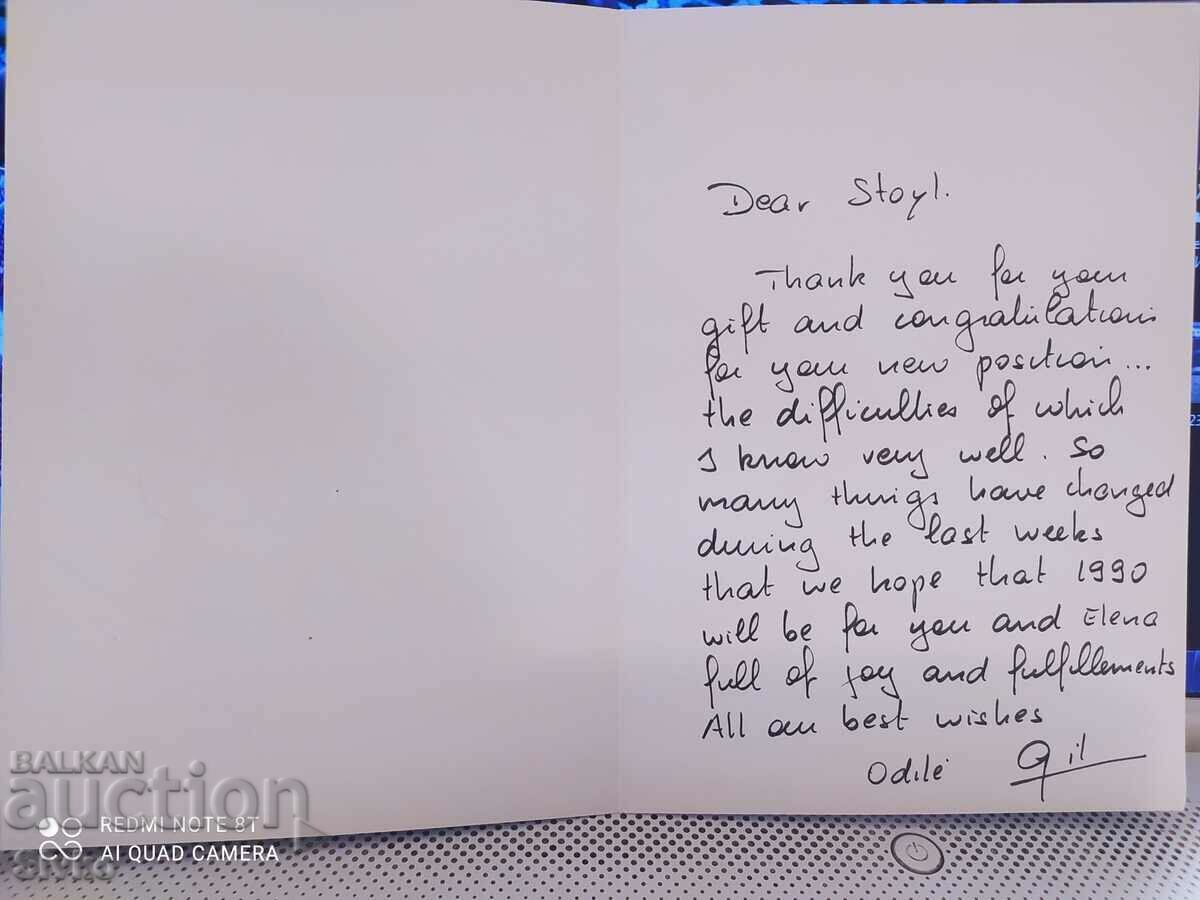 Dear Stoyl.
Thank you for your
gift and congratulations
for your new position...
the difficulties of which
I know very well. So
many things have changed
during the last weeks
that we hope that 1990
will be for you and Elena
full of joy and fulfillements
All our best wishes
Odile Gil
BALKAN
auction
REDMI NOTE 8T
AI QUAD CAMERA